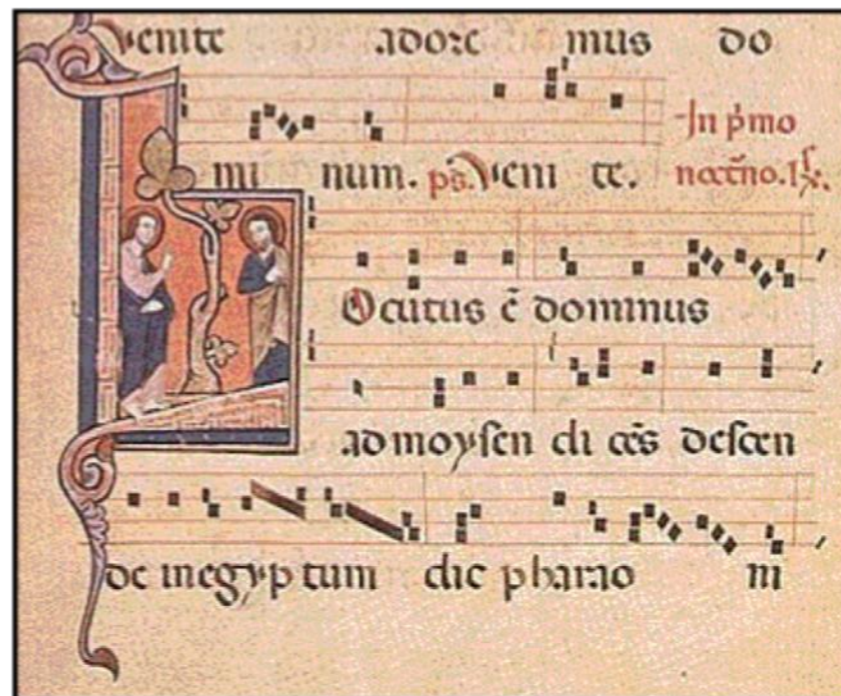 Venite adore mus do
In p̄mo
mi num. ps̄. Veni te.
Ocutus ē dominus
ad moysen di cēs descen
de in egyp tum dic pharao ni